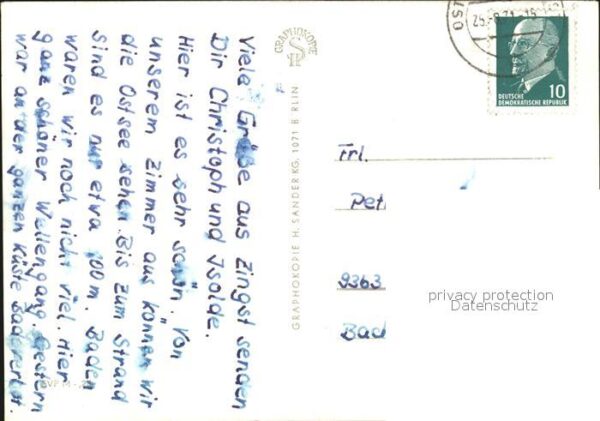 Viele Grüße aus Zingst senden
Dir Christoph und Isolde.
Hier ist es sehr schön. Von
unserem Zimmer aus können wir
die Ostsee sehen. Bis zum Strand
sind es nur etwa 100 m. Baden
waren wir noch nicht viel. Hier
ganz schöner Wellengang. Gestern
war an der ganzen Küste Badeverbot.
GRAPHOKOPIE
GRAPHOKOPIE H. SANDER KG. 1071 BERLIN
10
DEUTSCHE
DEMOKRATISCHE REPUBLIK
Frl.
Pet
9363
Bad
privacy protection
Datenschutz